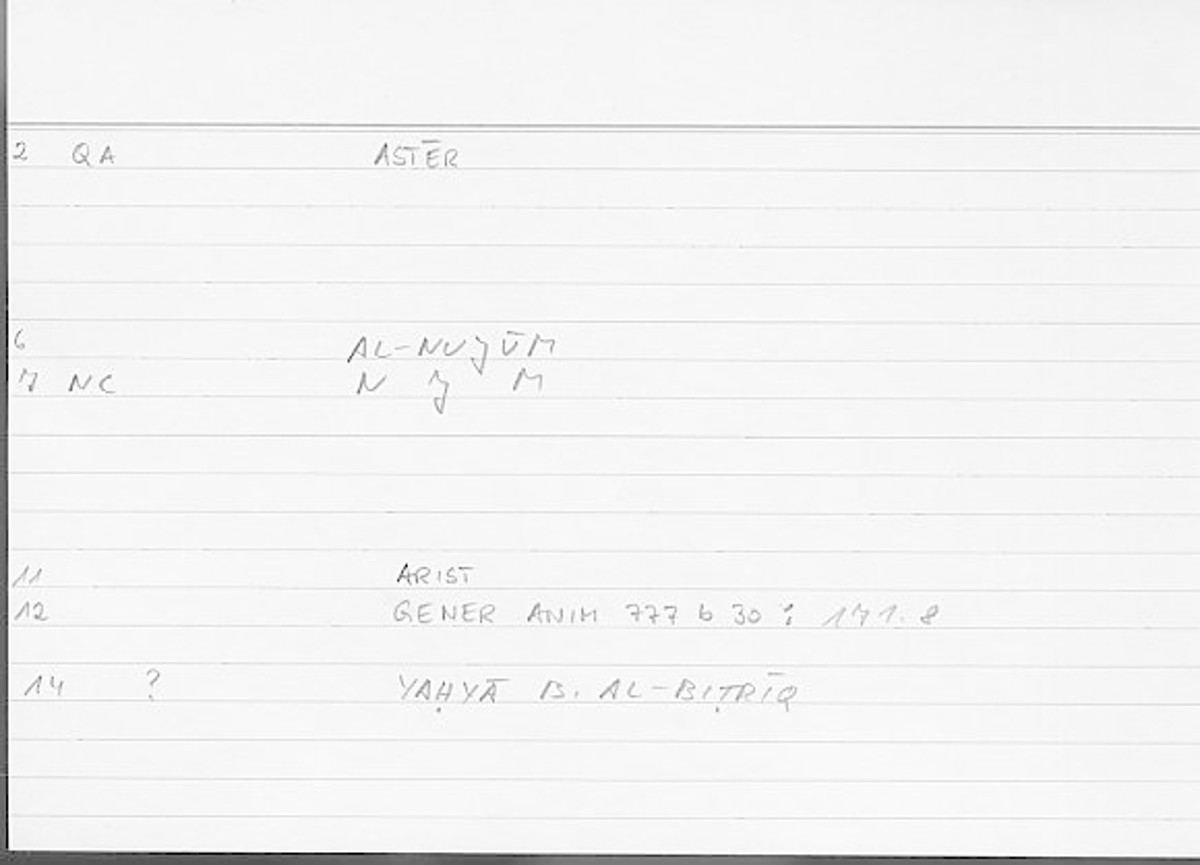 2 QA ASTĒR
6 AL-NUJŪM
7 NC N J M
11 ARIST
12 GENER ANIM 777 b 30 ; 171.8
14 ? YAḤYĀ B. AL-BIṬRĪQ